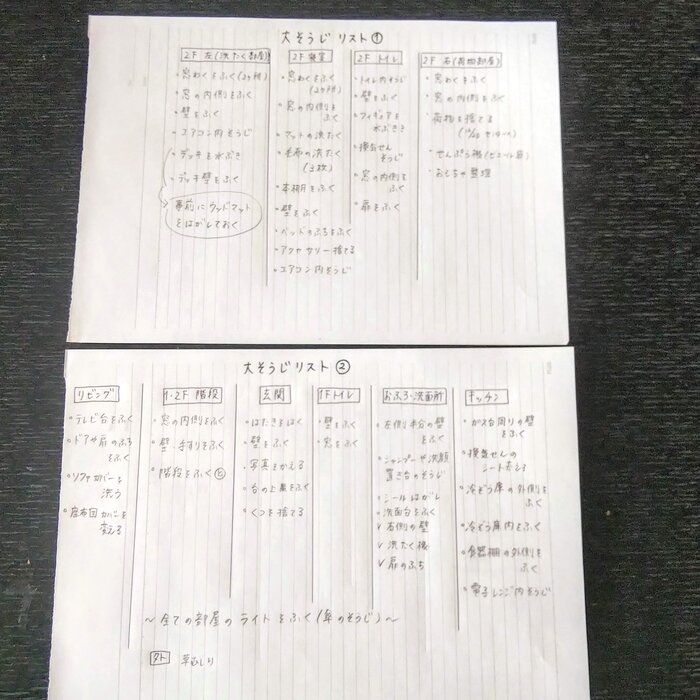 大そうじリスト①
2F 左(洗たく部屋)
・窓わくをふく(2ヶ所)
・窓の内側をふく
・壁をふく
・エアコン内そうじ
・デッキを水ぶき
・デッキ壁をふく
事前にウッドマット
をはがしておく
2F 寝室
・窓わくをふく
(2ヶ所)
・窓の内側を
ふく
・マットの洗たく
・毛布の洗たく
(3枚)
・本棚をふく
・壁をふく
・ベッドのふちをふく
・アクセサリー捨てる
・エアコン内そうじ
2F トイレ
・トイレ内そうじ
・壁をふく
・フィギュアを
水ぶき
・換気せん
そうじ
・窓の内側を
ふく
・扉をふく
・窓わくをふく
・窓の内側をふく
・荷物を捨てる
・せんぷう機(ビニール
・おもちゃ整理
大そうじリスト②
リビング
・テレビ台をふく
・ドアや扉のふち
をふく
・ソファカバーを
洗う
・座布団カバーを
変える
1・2F 階段
・窓の内側をふく
・壁・手すりをふく
・階段をふく
玄関
・はたきをはく
・壁をふく
・写真をかえる
・台の上裏をふく
・くつを捨てる
1Fトイレ
・壁をふく
・窓をふく
おふろ・洗面所
・左側半分の壁
をふく
・シャンプーや洗顔
置き台のそうじ
・シールはがし
・洗面台をふく
✓ 右側の壁
✓ 洗たく機
✓ 扉のふち
キッチン
・ガス台周りの壁
をふく
・換気せんの
シート
・冷ぞう庫の外側を
ふく
・冷ぞう庫内をふく
・食器棚の外側を
ふく
・電子レンジ内そうじ
～全ての部屋のライトをふく(傘のそうじ)～
外 草むしり